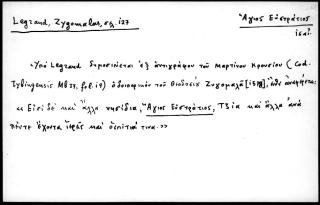 Legrand, Zygomalas, σελ. 127
Ἅγιος Εὐστράτιος
Ὑπὸ Legrand δημοσιεύεται ἐξ ἀντιγράφου τοῦ Μαρτίνου Κρουσίου (Cod.
Tybingensis Mb 37, p. 19) ὁδοιπορικὸν τοῦ Θεοδοσίου Ζυγομαλᾶ [1578], ὅθεν
« Εἰσὶ δὲ καὶ ἄλλα νησίδια, Ἅγιος Εὐστράτιος, Τζία καὶ ἄλλα ἀνὰ
πέντε ἔχοντα ἱερεῖς καὶ ὀσπίτιά τινα.»